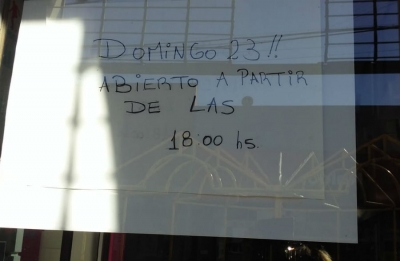 DOMINGO 23!!
ABIERTO A PARTIR
DE LAS
18:00 hs.